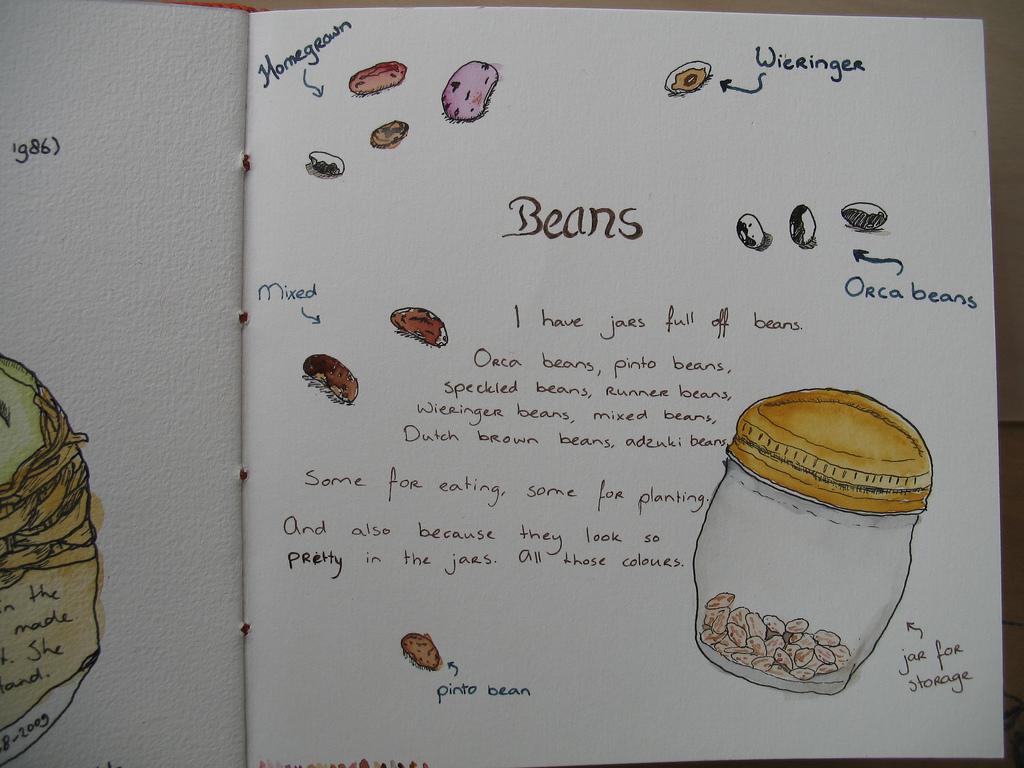 1986)
in the
made
t. She
land.
8-2009
Homegrown
Wieringer
Beans
Orca beans
Mixed
I have jars full off beans.
Orca beans, pinto beans,
speckled beans, runner beans,
Wieringer beans, mixed beans,
Dutch brown beans, adzuki beans
Some for eating, some for planting.
And also because they look so
pretty in the jars. All those colours.
jar for
storage
pinto bean